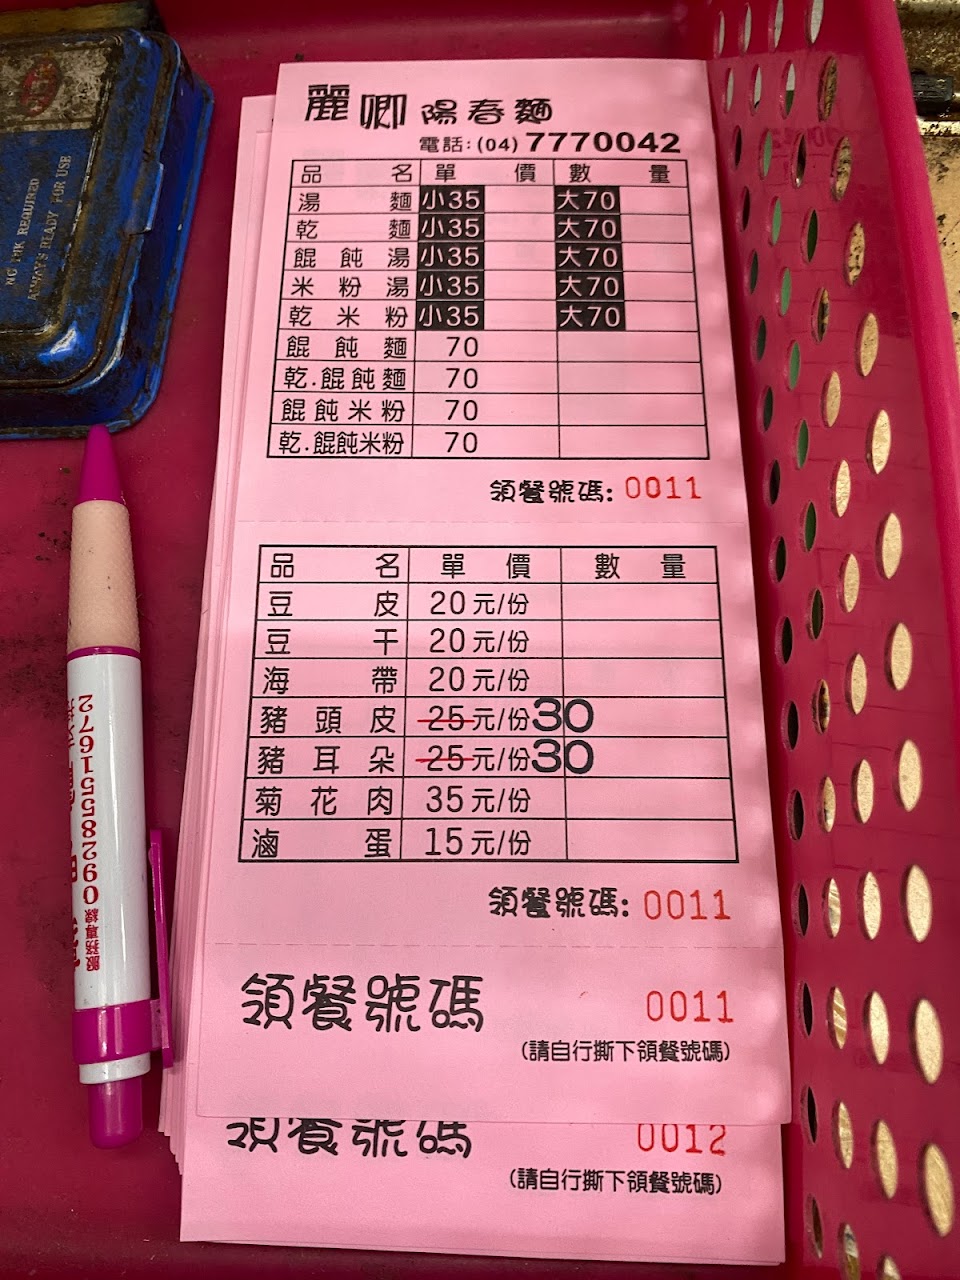 NO INK REQUIRED
ALWAYS READY FOR USE
麗卿陽春麵
電話:(04) 7770042
品名 單價 數量
湯麵 小35 大70
乾麵 小35 大70
餛飩湯 小35 大70
米粉湯 小35 大70
乾米粉 小35 大70
餛飩麵 70
乾.餛飩麵 70
餛飩米粉 70
乾.餛飩米粉 70
領餐號碼: 0011
品名 單價 數量
豆皮 20元/份
豆干 20元/份
海帶 20元/份
豬頭皮 25元/份30
豬耳朵 25元/份30
菊花肉 35元/份
滷蛋 15元/份
領餐號碼: 0011
領餐號碼 0011
(請自行撕下領餐號碼)
領餐號碼 0012
(請自行撕下領餐號碼)
服務專線 0928551672